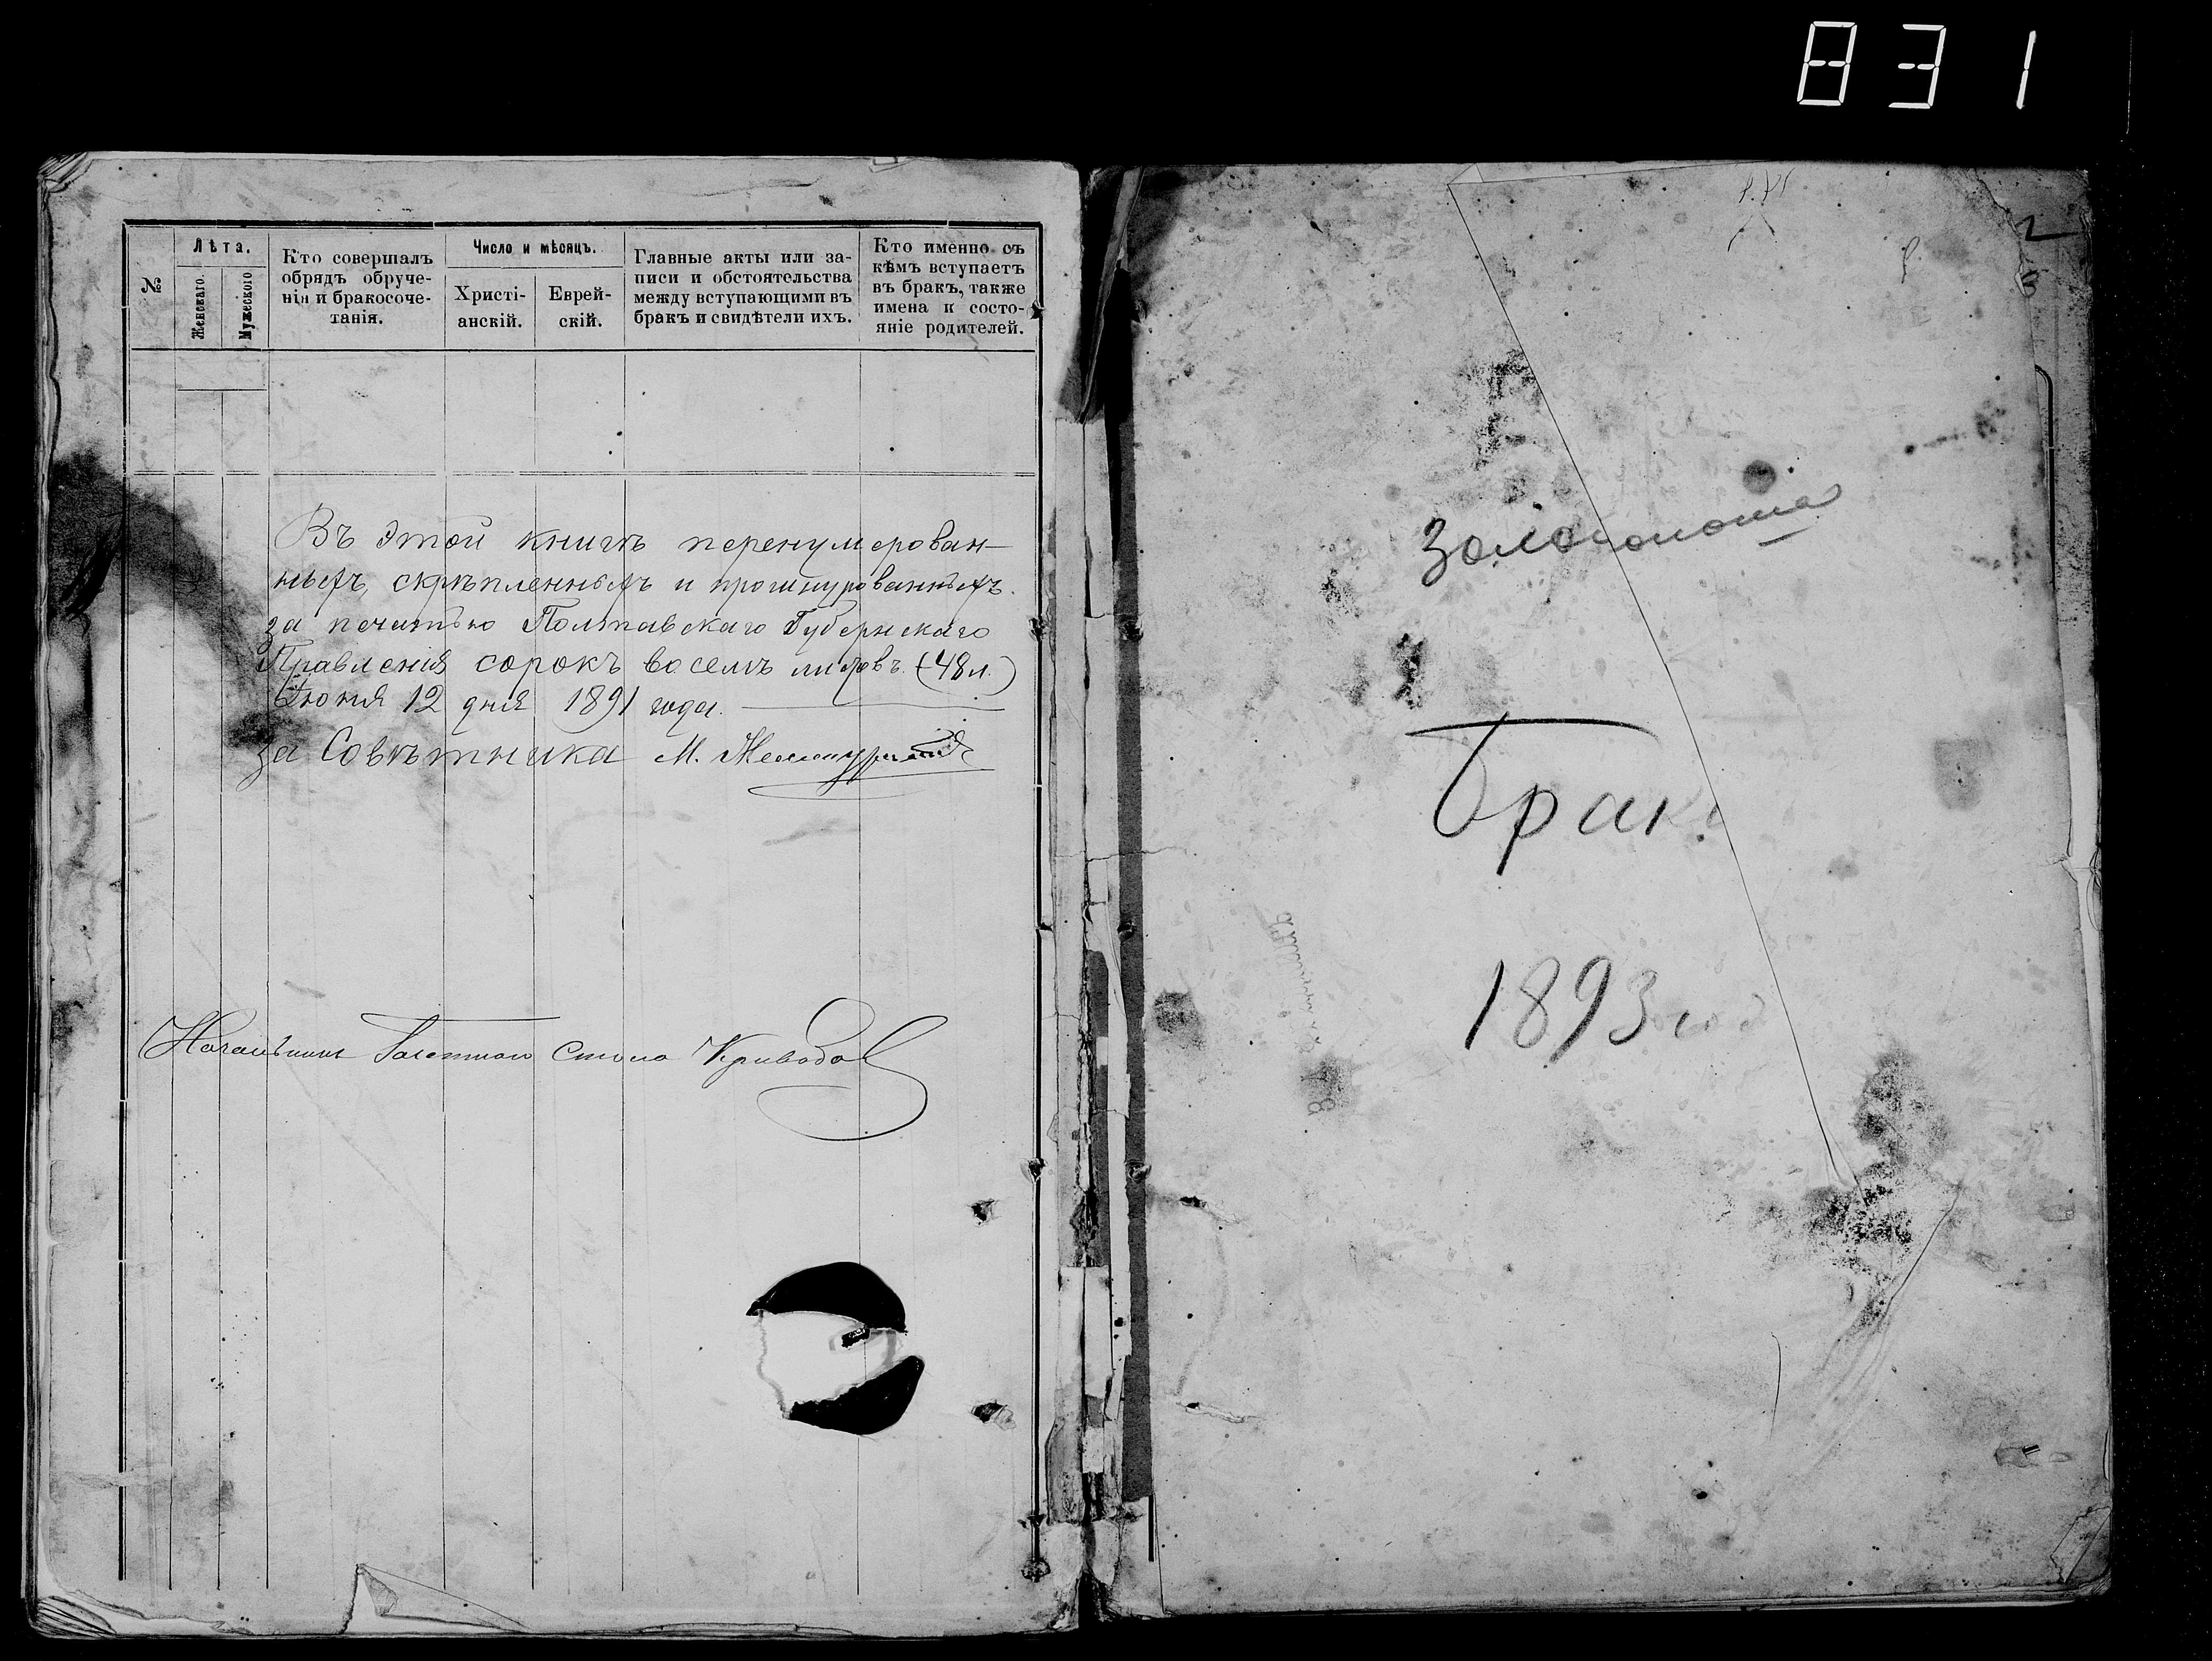 831
№
Лѣта.
Женскаго.
Мужескаго
Кто совершалъ
обрядъ обруче-
нія и бракосоче-
танія.
Число и мѣсяцъ.
Христі-
анскій.
Еврей-
скій.
Главные акты или за-
писи и обстоятельства
между вступающими въ
бракъ и свидѣтели ихъ.
Кто именно съ
кѣмъ вступаетъ
въ бракъ, также
имена и состо-
яніе родителей.
Въ этой книгѣ перенумерован-
ныхъ, скрѣпленныхъ и прошнурованныхъ
за печатью Полтавскаго Губернскаго
Правленія сорокъ восемь листовъ (48 л.)
Іюня 12 дня 1891 года.
За Совѣтника М.
Начальникъ Газетнаго Стола
Золотоноша
Брак
1893 год